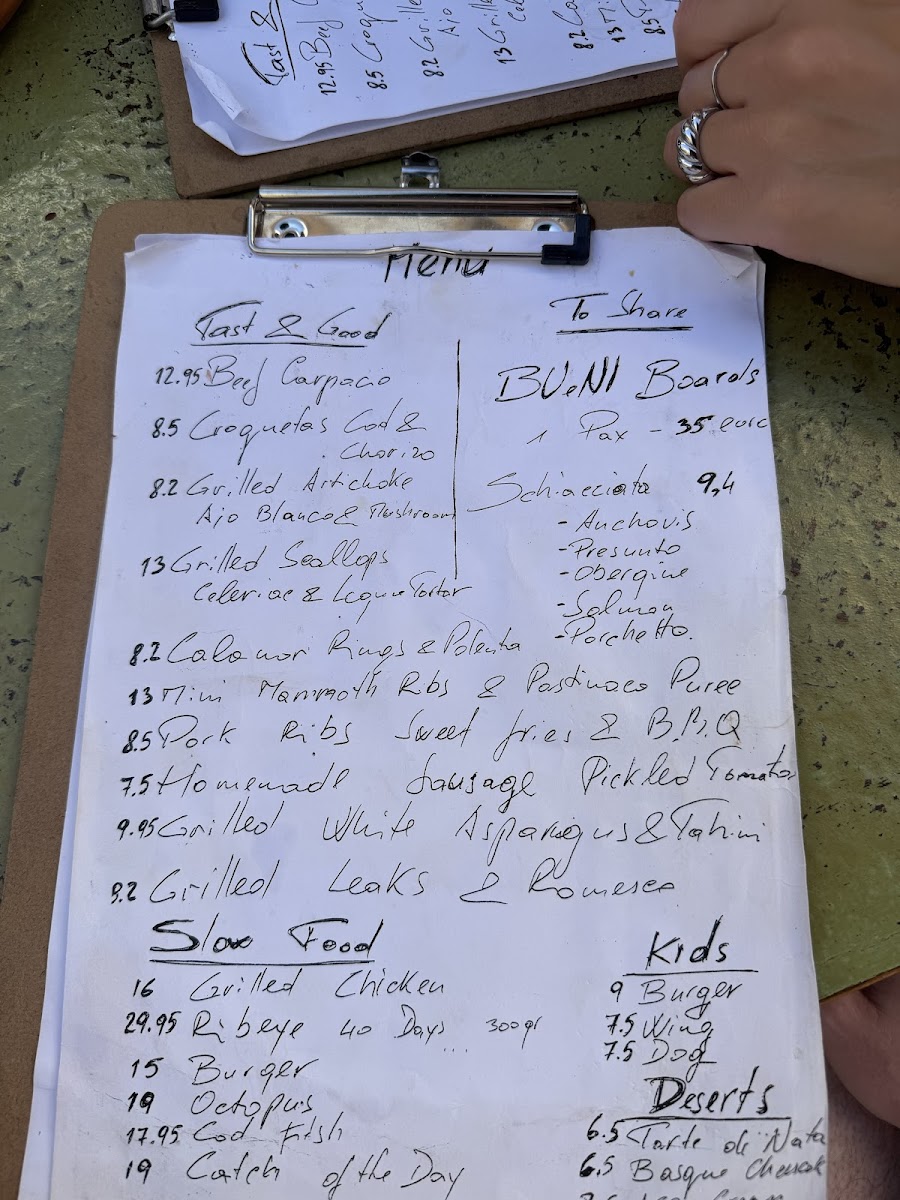 Fast &
12.95 Beef
8.5 Croque
8.2 Grille
Ajo
13 Grille
Cel
8.2 Ca
13 Mi
8.5
Menu
Fast & Good
12.95 Beef Carpacio
8.5 Croquetas Cod &
Chorizo
8.2 Grilled Artichoke
Ajo Blanco & Mushroom
13 Grilled Scallops
Celeriac & Tartar
To Share
BUeNI Boards
1 Pax - 35 euro
Schiacciata 9,4
- Anchovis
- Presunto
- Obergine
- Salmon
- Porchetto.
8.2 Calamari Rings & Polenta
13 Mini Mammoth Ribs & Pastinaca Puree
8.5 Pork Ribs Sweet fries & B.B.Q
7.5 Homemade Sausage Pickled Tomato
9.95 Grilled White Asparagus & Tahini
8.2 Grilled Leaks & Romesco
Slow Food
16 Grilled Chicken
29.95 Ribeye 40 Days ... 300gr
15 Burger
19 Octopus
17.95 Cod Fish
19 Catch of the Day
Kids
9 Burger
7.5 Wing
7.5 Dog
Deserts
6.5 Tarte de Nata
6.5 Basque Cheesecake